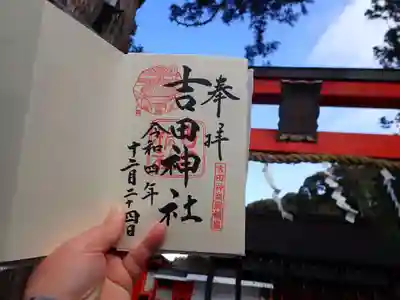 奉拝
吉田神社
令和四年
十二月二十四日